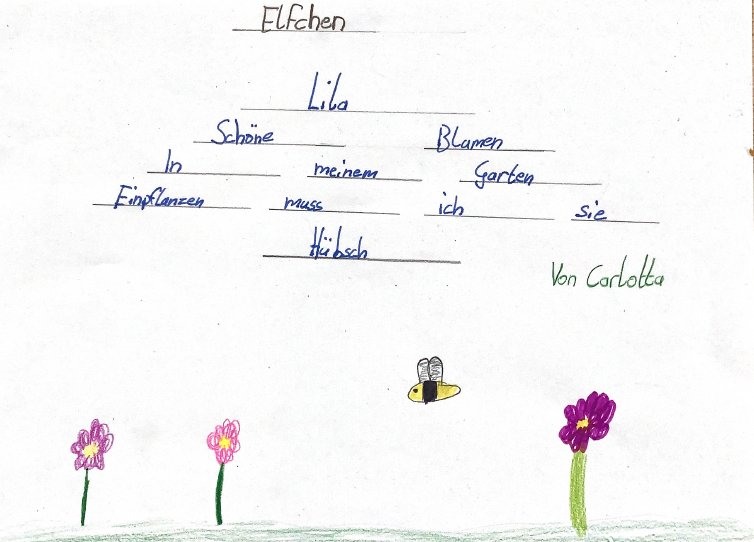 Elfchen
Lila
Schöne Blumen
In meinem Garten
Einpflanzen muss ich sie
Hübsch
Von Carlotta